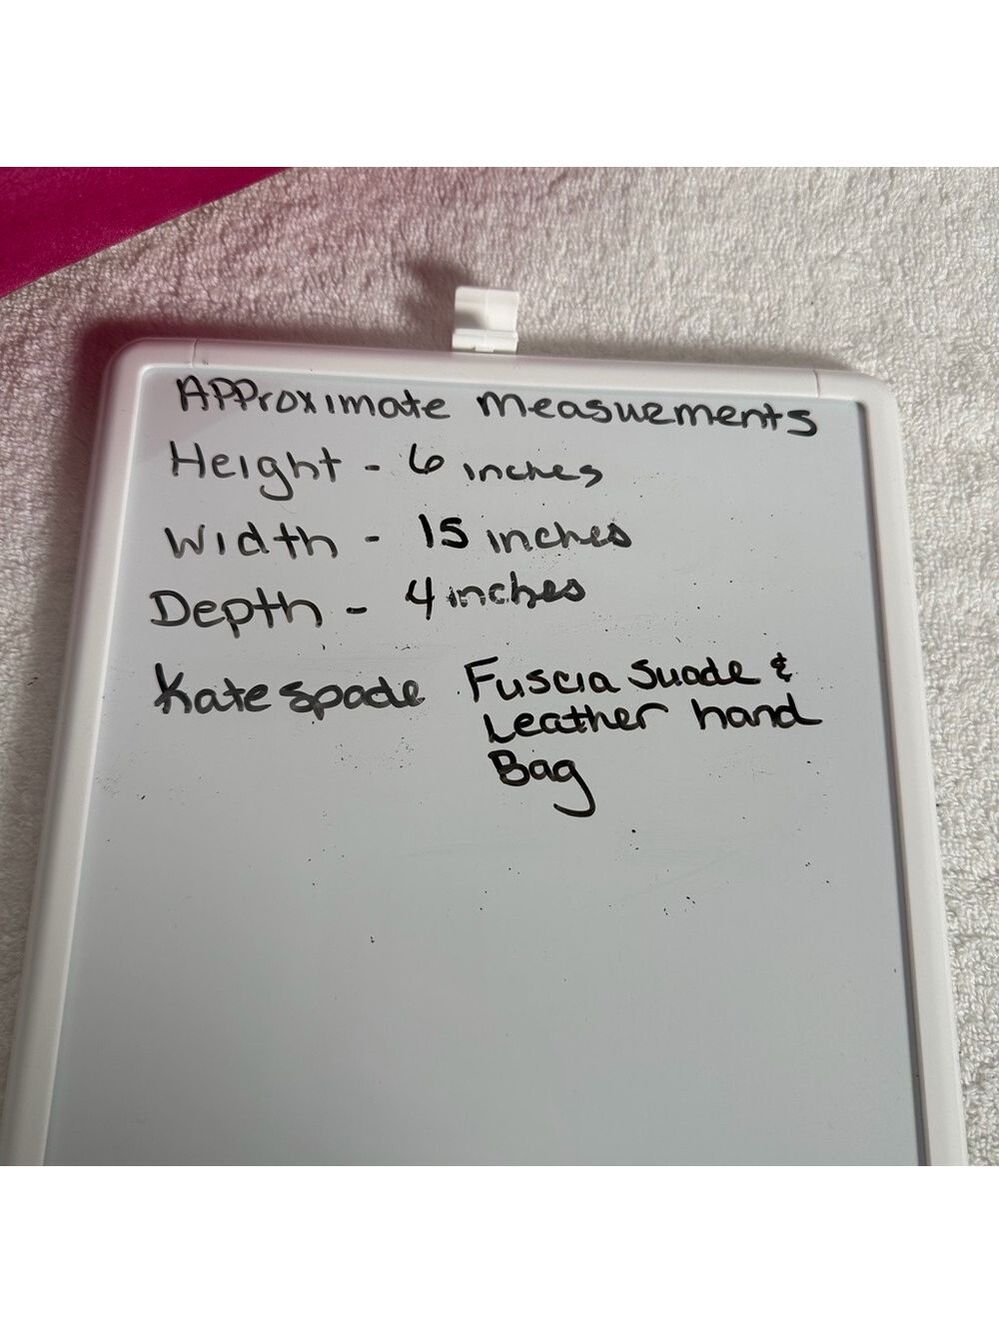 APProximate measuements
Height - 6 inches
Width - 15 inches
Depth - 4 inches
Kate spade Fuscia Suade &
Leather hand
Bag